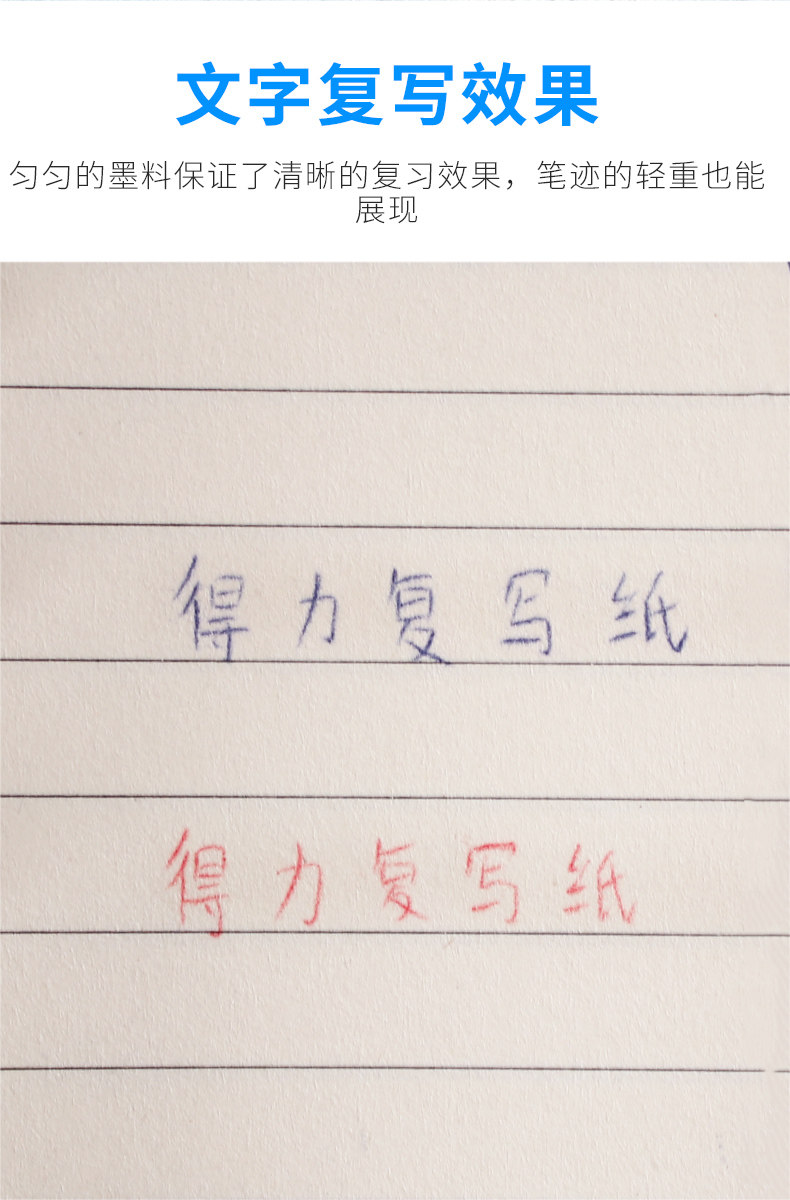 文字复写效果
匀匀的墨料保证了清晰的复习效果，笔迹的轻重也能
展现
得力复写纸
得力复写纸